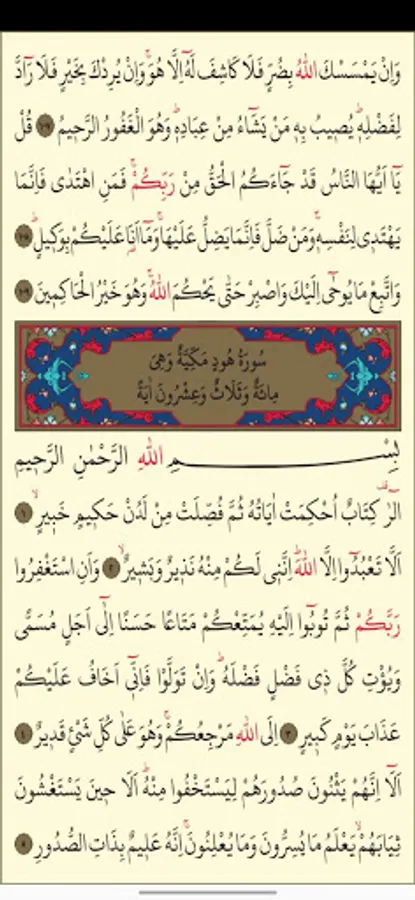 وَاِنْ يَمْسَسْكَ اللّٰهُ بِضُرٍّ فَلَا كَاشِفَ لَهُٓ اِلَّا هُوَۚ وَاِنْ يُرِدْكَ بِخَيْرٍ فَلَا رَٓادَّ
لِفَضْلِه۪ۜ يُص۪يبُ بِه۪ مَنْ يَشَٓاءُ مِنْ عِبَادِه۪ۜ وَهُوَ الْغَفُورُ الرَّح۪يمُ ﴿١٠٧﴾ قُلْ
يَٓا اَيُّهَا النَّاسُ قَدْ جَٓاءَكُمُ الْحَقُّ مِنْ رَبِّكُمْۚ فَمَنِ اهْتَدٰى فَاِنَّمَا
يَهْتَد۪ي لِنَفْسِه۪ۚ وَمَنْ ضَلَّ فَاِنَّمَا يَضِلُّ عَلَيْهَاۚ وَمَٓا اَنَا۬ عَلَيْكُمْ بِوَك۪يلٍۜ ﴿١٠٨﴾
وَاتَّبِعْ مَا يُوحٰٓى اِلَيْكَ وَاصْبِرْ حَتّٰى يَحْكُمَ اللّٰهُۚ وَهُوَ خَيْرُ الْحَاكِم۪ينَ ﴿١٠٩﴾
سُورَةُ هُودٍ مَكِّيَّةٌ وَهِيَ
مِائَةٌ وَثَلَاثٌ وَعِشْرُونَ اٰيَةً
بِسْمِ اللّٰهِ الرَّحْمٰنِ الرَّح۪يمِ
الٓرٰ۠ كِتَابٌ اُحْكِمَتْ اٰيَاتُهُ ثُمَّ فُصِّلَتْ مِنْ لَدُنْ حَك۪يمٍ خَب۪يرٍۙ ﴿١﴾
اَلَّا تَعْبُدُٓوا اِلَّا اللّٰهَۜ اِنَّن۪ي لَكُمْ مِنْهُ نَذ۪يرٌ وَبَش۪يرٌۙ ﴿٢﴾ وَاَنِ اسْتَغْفِرُوا
رَبَّكُمْ ثُمَّ تُوبُٓوا اِلَيْهِ يُمَتِّعْكُمْ مَتَاعًا حَسَنًا اِلٰٓى اَجَلٍ مُسَمًّى
وَيُؤْتِ كُلَّ ذ۪ي فَضْلٍ فَضْلَهُۜ وَاِنْ تَوَلَّوْا فَاِنّ۪ٓي اَخَافُ عَلَيْكُمْ
عَذَابَ يَوْمٍ كَب۪يرٍ ﴿٣﴾ اِلَى اللّٰهِ مَرْجِعُكُمْۚ وَهُوَ عَلٰى كُلِّ شَيْءٍ قَد۪يرٌ ﴿٤﴾
اَلَٓا اِنَّهُمْ يَثْنُونَ صُدُورَهُمْ لِيَسْتَخْفُوا مِنْهُۜ اَلَا ح۪ينَ يَسْتَغْشُونَ
ثِيَابَهُمْۙ يَعْلَمُ مَا يُسِرُّونَ وَمَا يُعْلِنُونَۚ اِنَّهُ عَل۪يمٌ بِذَاتِ الصُّدُورِ ﴿٥﴾